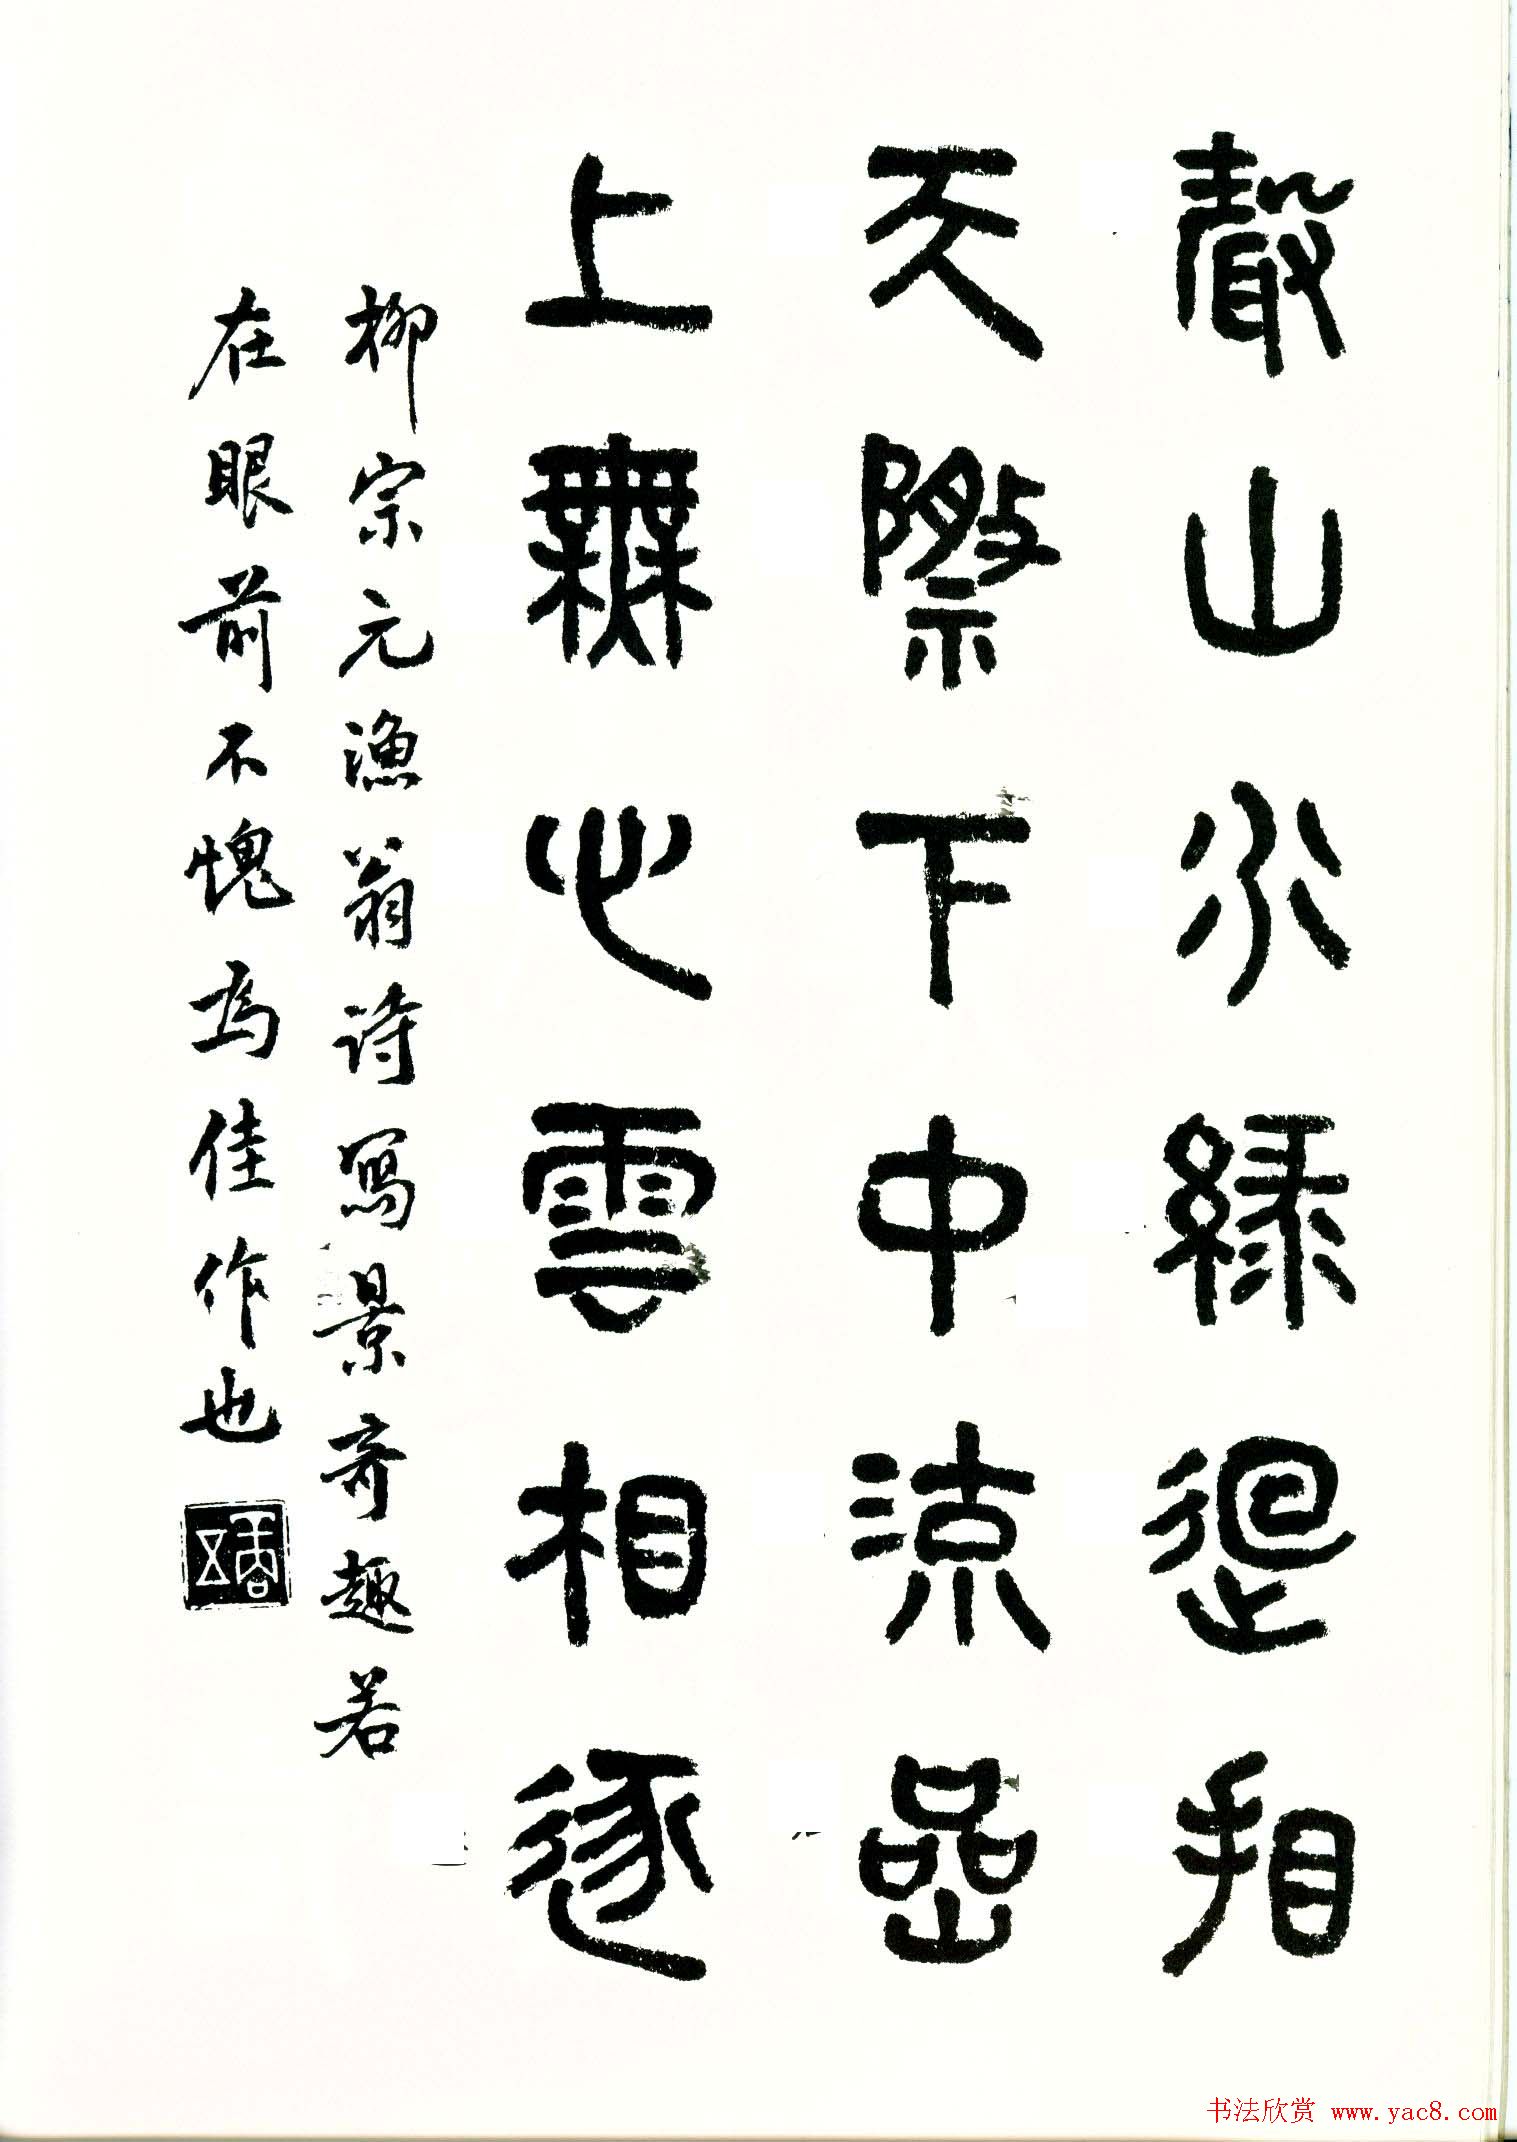 聲山水綠迴看
天際下中流巖
上無心雲相逐
柳宗元漁翁詩寫景奇趣若
在眼前不愧為佳作也
书法欣赏 www.yac8.com